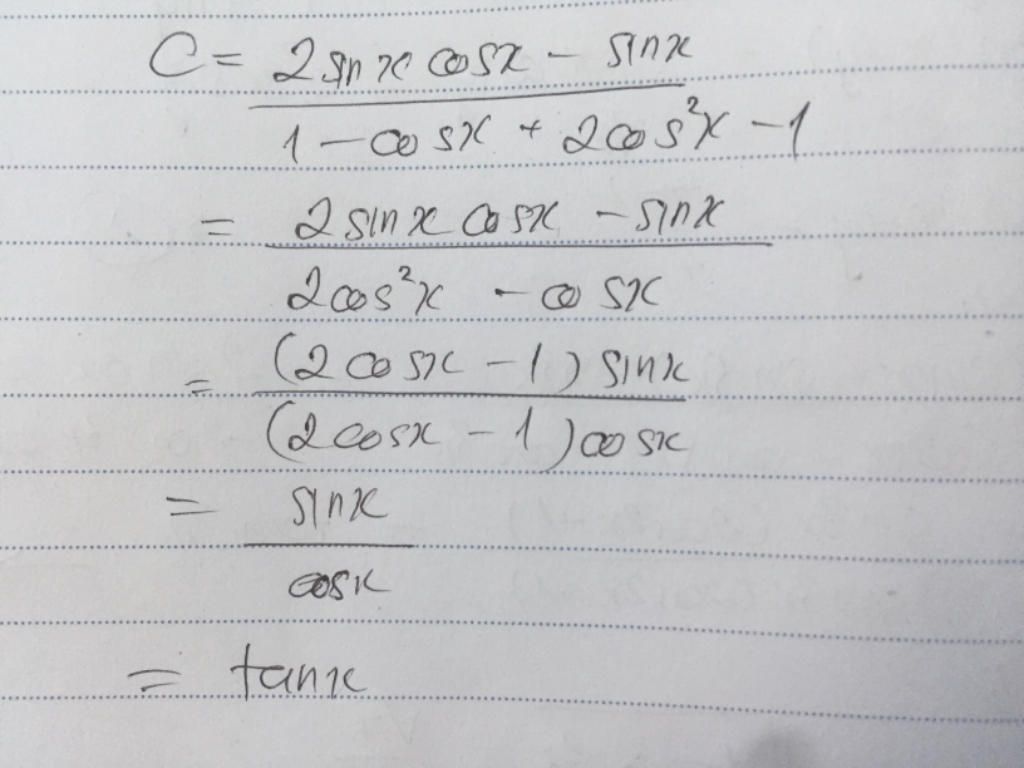 C = 2sinx cosx - sinx
1 - cosx + 2cos²x - 1
= 2sinx cosx - sinx
2cos²x - cosx
= (2cosx - 1) sinx
(2cosx - 1)cosx
= sinx
cosx
= tanx